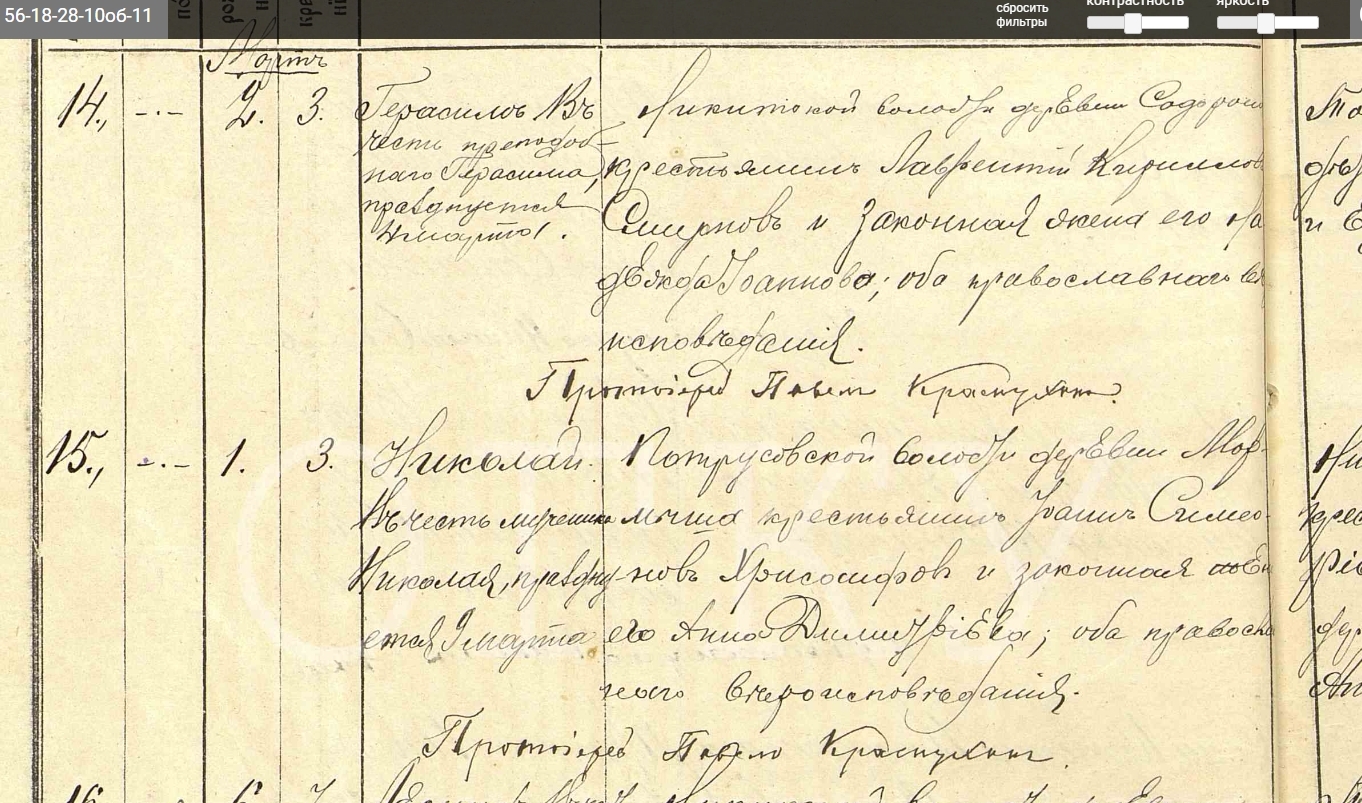 56-18-28-10об-11
сбросить
фильтры
контрастность
яркость
Мартъ
14., -.- 2. 3. Герасимъ Въ Никитской волости деревни
честь преподоб-
наго Герасима, крестьянинъ Лаврентій Кириллов
празднуется Смирновъ и законная жена его На
4 марта.
дежда Іоаннова; оба православнаго вѣ
исповѣданія.
Протоіерей Павелъ
15., -.- 1. 3. Николай. Потрусовской волости деревни
Въ честь мученика крестьянинъ Іоаннъ Симео-
Николая, праздну- новъ Хрисанфовъ и законная
ется 9 марта его Анна Димитріева; оба правосла
наго вѣроисповѣданія.
Протоіерей Павелъ
16.